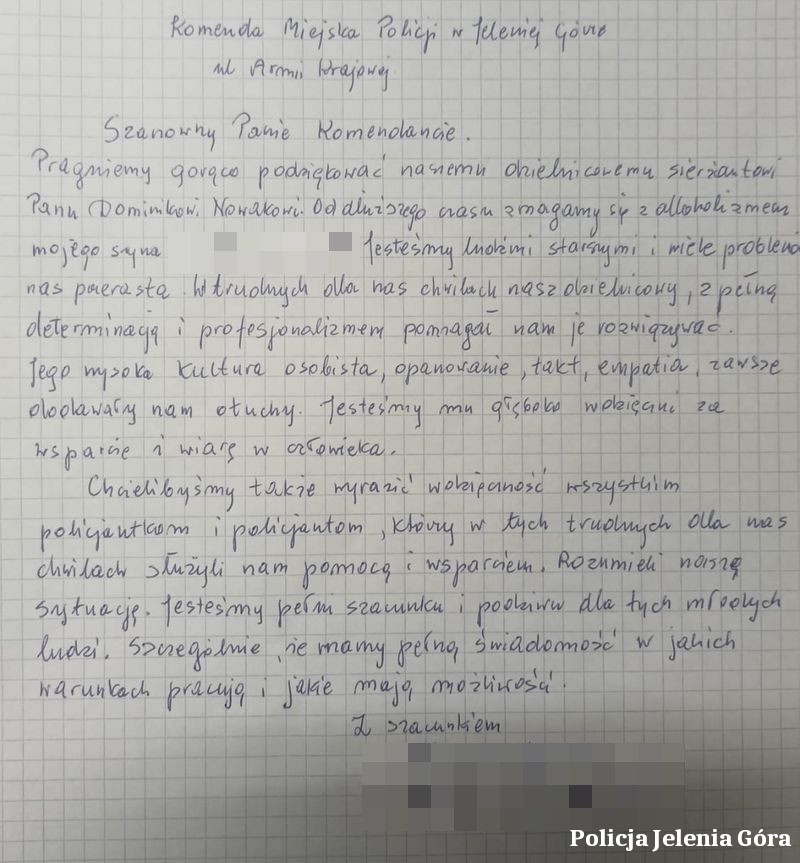 Komenda Miejska Policji w Jeleniej Górze
ul Armii Krajowej
Szanowny Panie Komendancie.
Pragniemy gorąco podziękować naszemu dzielnicowemu sierżantowi
Panu Dominikowi Nowakowi. Od dłuższego czasu zmagamy się z alkoholizmem
mojego syna Jesteśmy ludźmi starszymi i wiele problemów
nas przerasta. W trudnych dla nas chwilach nasz dzielnicowy, z pełną
determinacją i profesjonalizmem pomagał nam je rozwiązywać.
Jego wysoka kultura osobista, opanowanie, takt, empatia, zawsze
dodawały nam otuchy. Jesteśmy mu głęboko wdzięczni za
wsparcie i wiarę w człowieka.
Chcielibyśmy także wyrazić wdzięczność wszystkim
policjantkom i policjantom, którzy w tych trudnych dla nas
chwilach służyli nam pomocą i wsparciem. Rozumieli naszą
sytuację. Jesteśmy pełni szacunku i podziwu dla tych młodych
ludzi. Szczególnie, że mamy pełną świadomość w jakich
warunkach pracują i jakie mają możliwości.
Z szacunkiem
Policja Jelenia Góra